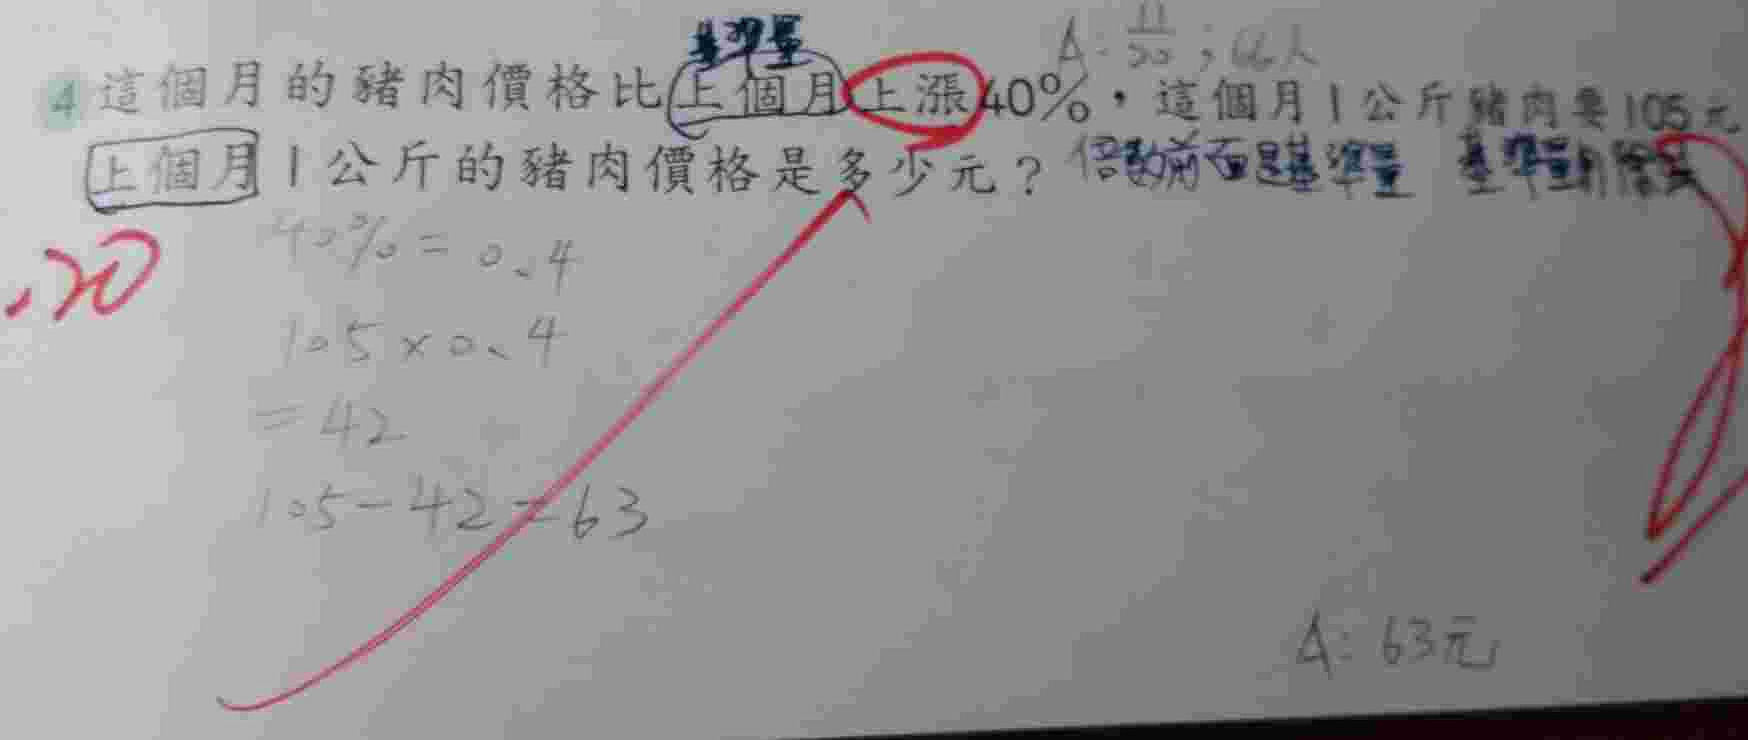 A: 11/20 ; 66人
基準量
4 這個月的豬肉價格比上個月上漲40%，這個月1公斤豬肉要105元
上個月1公斤的豬肉價格是多少元？ 倍數前面是基準量 基準量用除法
40% = 0.4
105×0.4
=42
105-42=63
A: 63元